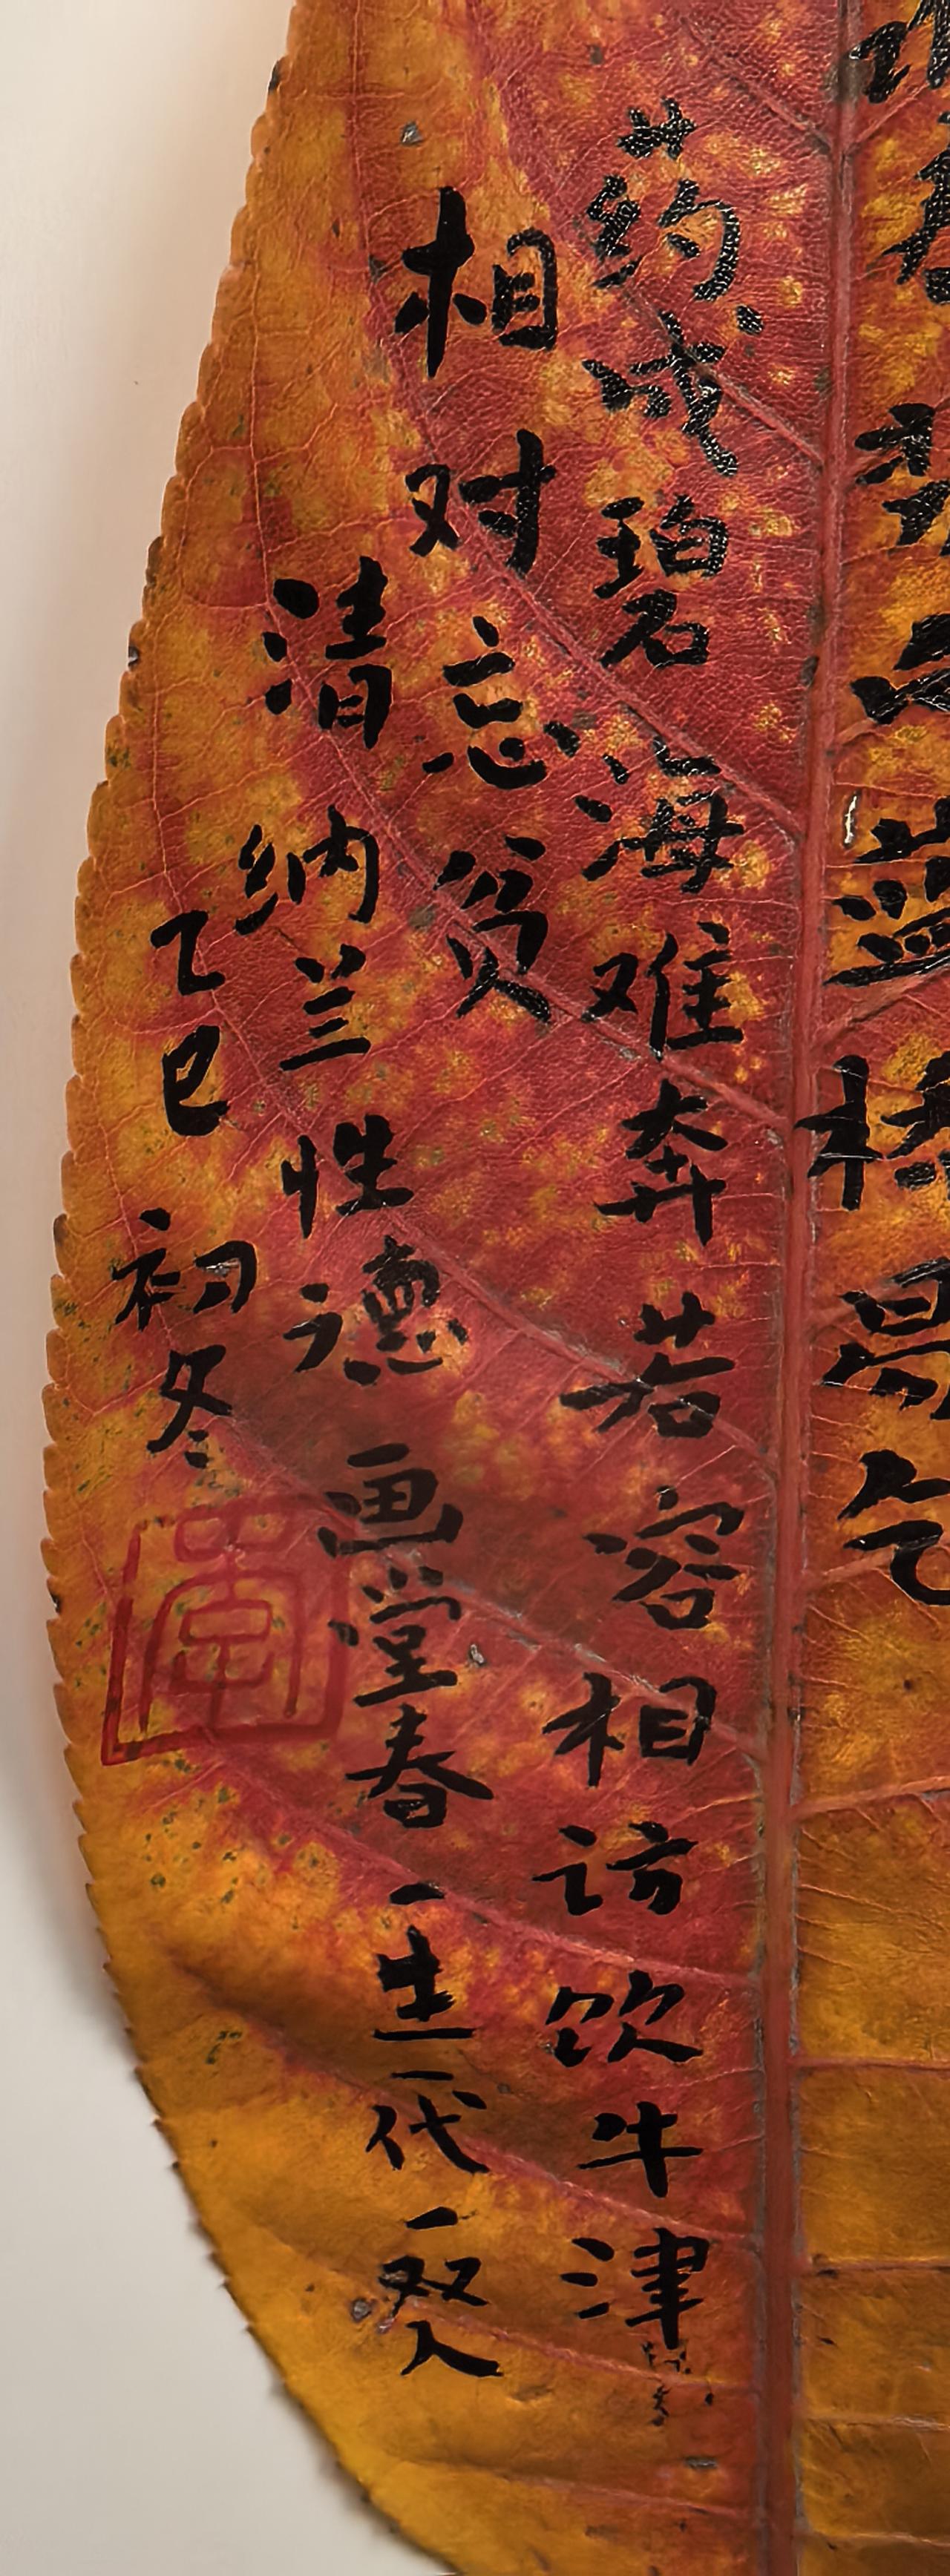 蓝桥易乞
药成碧海难奔若容相访饮牛津
相对忘贫
清纳兰性德画堂春一生一代一双人
乙巳初冬